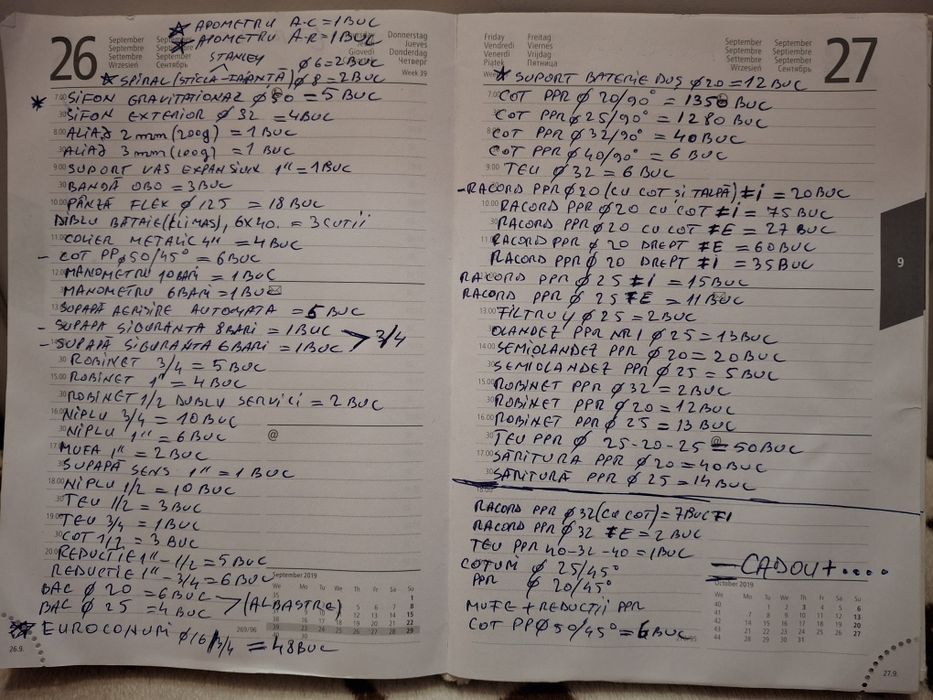 * APOMETRU A-C = 1BUC
* APOMETRU A-R = 1BUC
26
September
Septembre
Settembre
Wrzesień
September
Septiembre
Setembro
Сентябрь
Donnerstag
Jeudi
Giovedì
Donderdag
Четверг
Week 39
STANLEY
Ø6 = 2BUC
* SPIRAL (STICLA-FAIANTĂ) Ø8 = 2BUC
* SIFON GRAVITATIONAL Ø50 = 5 BUC
SIFON EXTERIOR Ø 32 = 4BUC
ALIAJ 2mm (200g) = 1 BUC
ALIAJ 3mm (100g) = 1 BUC
SUPORT VAS EXPANSIUN 1" = 1BUC
BANDĂ OBO = 3BUC
PÂNZĂ FLEX Ø 125 = 18BUC
DIBLU BATAIE (CLIMAS), 6x40. = 3 CUTII
COLIER METALIC 4" = 4BUC
- COT PP Ø50/45° = 6BUC
MANOMETRU 10BARI = 1BUC
MANOMETRU 6BARI = 1BUC
SUPAPĂ AERISIRE AUTOMATA = 5 BUC
- SUPAPA SIGURANTA 8BARI = 1BUC
- SUPAPĂ SIGURANTA 6BARI = 1BUC > 3/4
ROBINET 3/4 = 5BUC
ROBINET 1" = 4BUC
ROBINET 1/2 DUBLU SERVICI = 2 BUC
NIPLU 3/4 = 10BUC
NIPLU 1" = 6BUC
MUFA 1" = 2BUC
SUPAPA SENS 1" = 1 BUC
NIPLU 1/2 = 10BUC
TEU 1/2 = 3BUC
TEU 3/4 = 1BUC
COT 1/2 = 3 BUC
REDUCTIE 1" - 1/2 = 5BUC
REDUCTIE 1" - 3/4 = 6BUC
BAC Ø 20 = 6BUC
BAC Ø 25 = 4BUC > (ALBASTRE)
September 2019
269/96
EUROCONURI Ø16/3/4 = 48BUC
26.9.
Friday
Vendredi
Venerdì
Viernes
Piątek
Freitag
Sexta-feira
Vrijdag
Пятница
Week 39
September
Septembre
Settembre
Wrzesień
September
Septiembre
Setembro
Сентябрь
27
* SUPORT BATERIE DUȘ Ø20 = 12BUC
COT PPR Ø 20/90° = 1350BUC
COT PPR Ø 25/90° = 1280BUC
COT PPR Ø 32/90° = 40BUC
COT PPR Ø40/90° = 6 BUC
TEU Ø 32 = 6BUC
- RACORD PPR Ø20 (CU COT ȘI TALPĂ) FI = 20BUC
RACORD PPR Ø20 CU COT FI = 75BUC
RACORD PPR Ø20 CU COT FE = 27 BUC
RACORD PPR Ø 20 DREPT FE = 60BUC
RACORD PPR Ø 20 DREPT FI = 35BUC
RACORD PPR Ø 25 FI = 15BUC
RACORD PPR Ø 25 FE = 11BUC
FILTRU Y Ø 25 = 2BUC
OLANDEZ PPR NR1 Ø 25 = 13BUC
SEMIOLANDEZ PPR Ø20 = 20BUC
SEMIOLANDEZ PPR Ø25 = 5BUC
ROBINET PPR Ø 32 = 2BUC
ROBINET PPR Ø20 = 12BUC
ROBINET PPR Ø 25 = 13BUC
TEU PPR Ø 25-20-25 = 50BUC
SARITURA PPR Ø 20 = 40BUC
SARITURĂ PPR Ø 25 = 14BUC
9
RACORD PPR Ø32 (CU COT) = 7BUC FI
RACORD PPR Ø 32 FE = 2BUC
TEU PPR 40-32-40 = 1BUC
COTURI Ø 25/45°
PPR Ø 20/45°
= CADOU + ....
MUFE + REDUCTII PPR
COT PP Ø50/45° = 6BUC
October 2019
27.9.